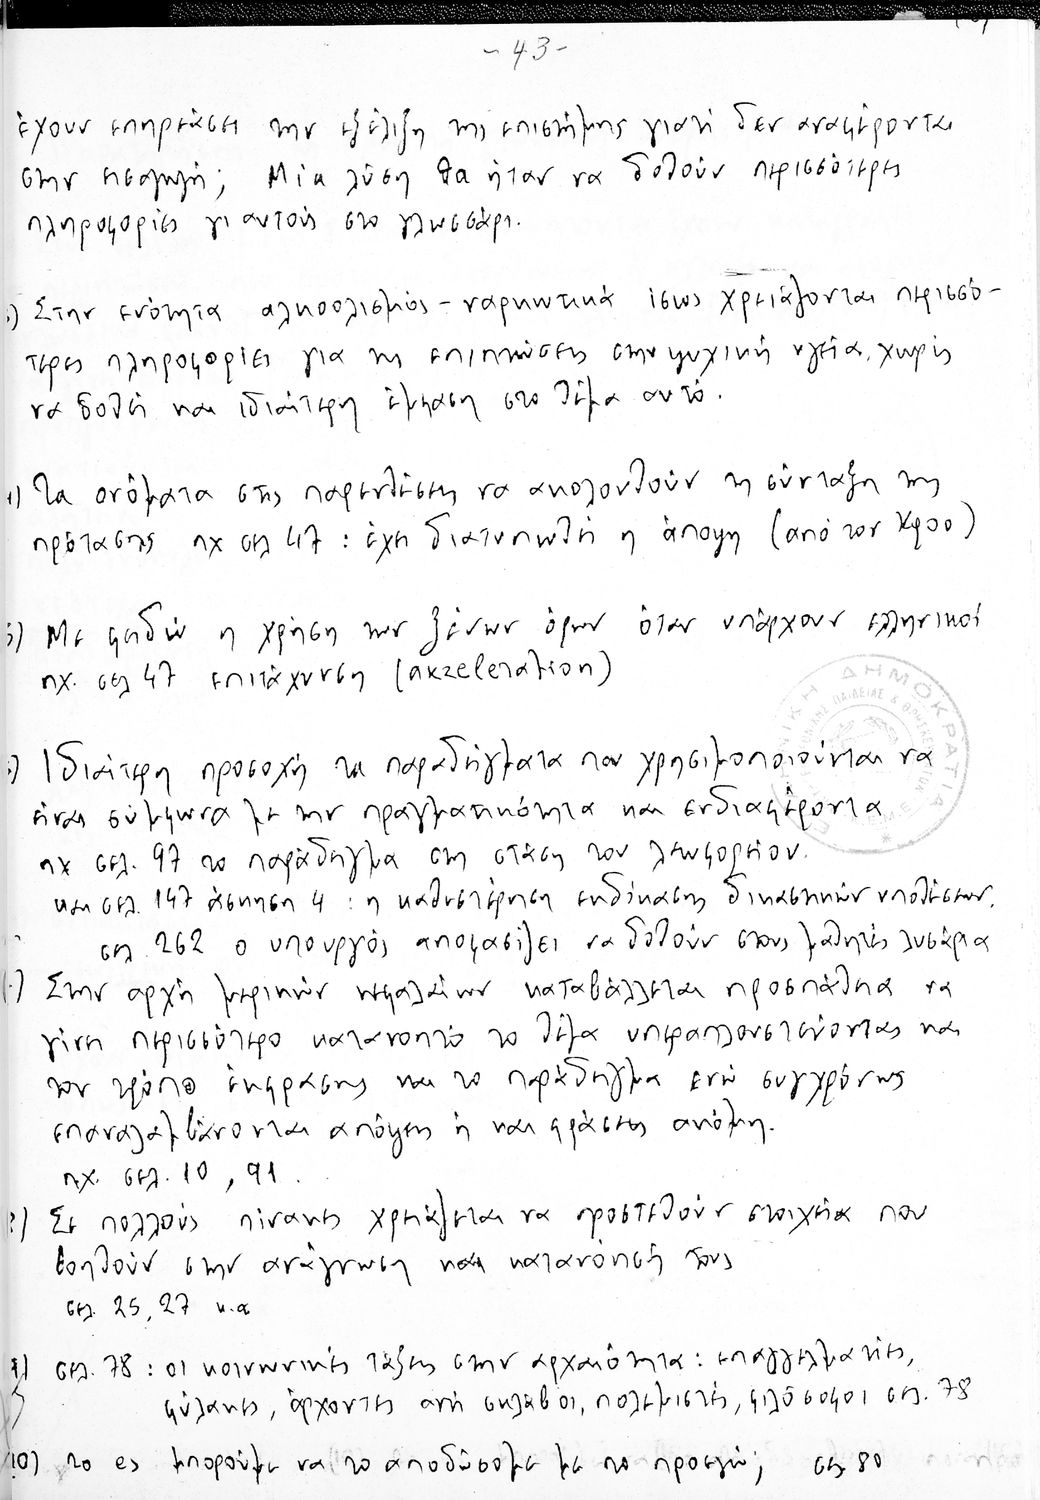 - 43 -
έχουν επηρεάσει την εξέλιξη της επιστήμης γιατί δεν αναφέρονται
στην εισαγωγή; Μία λύση θα ήταν να δοθούν περισσότερες
πληροφορίες γι αυτούς στο γλωσσάρι.
) Στην ενότητα αλκοολισμός - ναρκωτικά ίσως χρειάζονται περισσό-
τερες πληροφορίες για τις επιπτώσεις στην ψυχική υγεία, χωρίς
να δοθεί και ιδιαίτερη έμφαση στο θέμα αυτό.
4) Τα ονόματα στις παρενθέσεις να ακολουθούν τη σύνταξη της
πρότασης πχ σελ 47 : έχει διατυπωθεί η άποψη (από τον Κφοο)
5) Με φειδώ η χρήση των ξένων όρων όταν υπάρχουν ελληνικοί
πχ. σελ 47 επιτάχυνση (akzeleration)
) Ιδιαίτερη προσοχή τα παραδείγματα που χρησιμοποιούνται να
είναι σύμφωνα με την πραγματικότητα και ενδιαφέροντα
πχ σελ. 97 το παράδειγμα στη στάση του λεωφορείου.
και σελ. 147 άσκηση 4 : η καθυστέρηση εκδίκασης δικαστικών υποθέσεων.
σελ 262 ο υπουργός αποφασίζει να δοθούν στους μαθητές λυσάρια
) Στην αρχή μερικών κεφαλαίων καταβάλλεται προσπάθεια να
γίνει περισσότερο κατανοητό το θέμα υπεραπλουστεύοντας και
τον τρόπο έκφρασης και το παράδειγμα ενώ συγχρόνως
επαναλαμβάνονται απόψεις ή και φράσεις ακόμη.
πχ. σελ. 10 , 91 .
) Σε πολλούς πίνακες χρειάζεται να προστεθούν στοιχεία που
βοηθούν στην ανάγνωση και κατανόησή τους
σελ. 25, 27 κ.α
) σελ. 78 : οι κοινωνικές τάξεις στην αρχαιότητα : επαγγελματίες,
φύλακες, άρχοντες αντί σκλάβοι, πολεμιστές, φιλόσοφοι σελ. 78
10) το es μπορούμε να το αποδώσομε με το προεγώ; σελ 80
ΔΗΜΟΚΡΑΤΙΑ